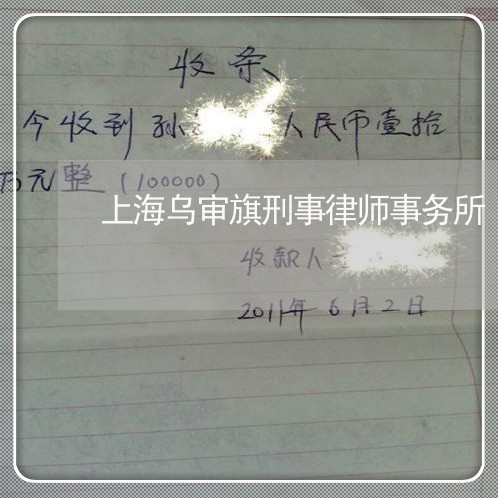 收条
今收到孙 人民币壹拾
万元整(100000)
上海乌审旗刑事律师事务所
收款人
2011年6月2日